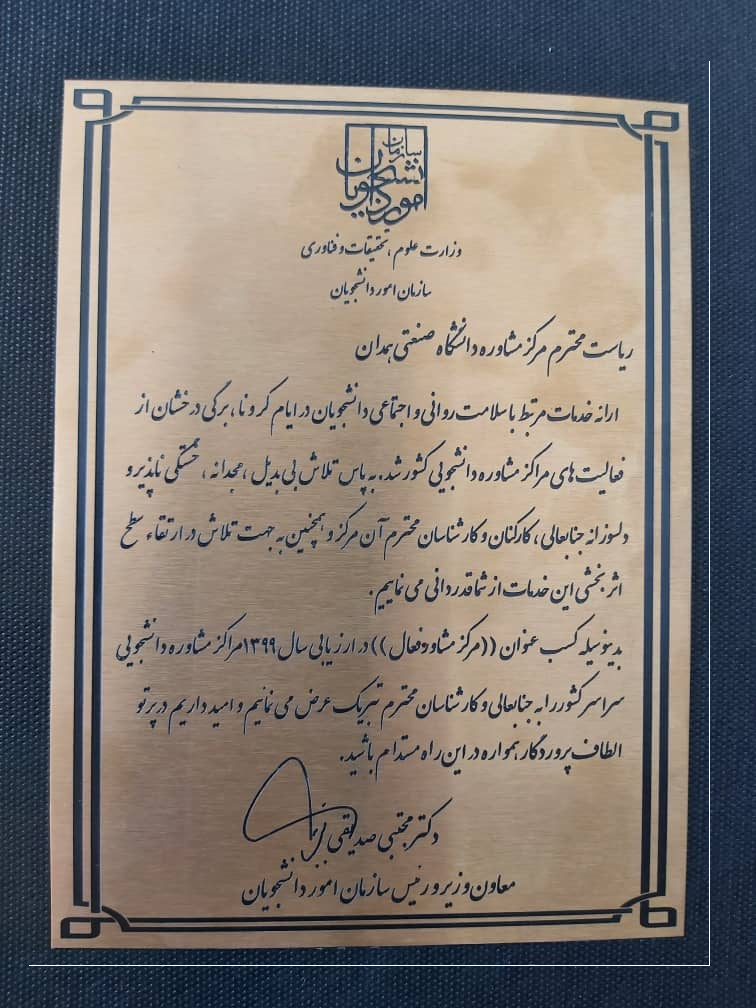 سازمان
امور دانشجویان
وزارت علوم، تحقیقات و فناوری
سازمان امور دانشجویان
ریاست محترم مرکز مشاوره دانشگاه صنعتی همدان
ارائه خدمات مرتبط با سلامت روانی و اجتماعی دانشجویان در ایام کرونا، برگی درخشان از
فعالیت های مراکز مشاوره دانشجویی کشور شد. به پاس تلاش بی بدیل، مجدانه، خستگی ناپذیر و
دلسوزانه جنابعالی، کارکنان و کارشناسان محترم آن مرکز و همچنین به جهت تلاش در ارتقاء سطح
اثر بخشی این خدمات از شما قدردانی می نماییم.
بدینوسیله کسب عنوان ((مرکز مشاوره فعال)) در ارزیابی سال ۱۳۹۹ مراکز مشاوره دانشجویی
سراسر کشور را به جنابعالی و کارشناسان محترم تبریک عرض می نمائیم و امید داریم در پرتو
الطاف پروردگار همواره در این راه مستدام باشید.
دکتر مجتبی صدیقی
معاون وزیر و رئیس سازمان امور دانشجویان